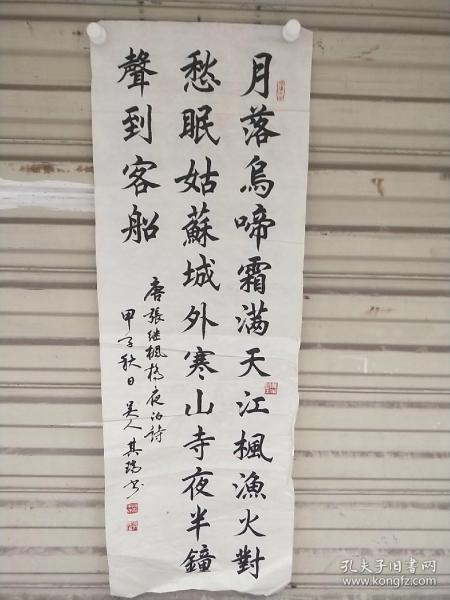 月落烏啼霜满天江楓漁火對
愁眠姑蘇城外寒山寺夜半鐘
聲到客船
唐張继楓橋夜泊詩
甲子秋日吴人其瑞书
孔夫子旧书网
www.kongfz.com